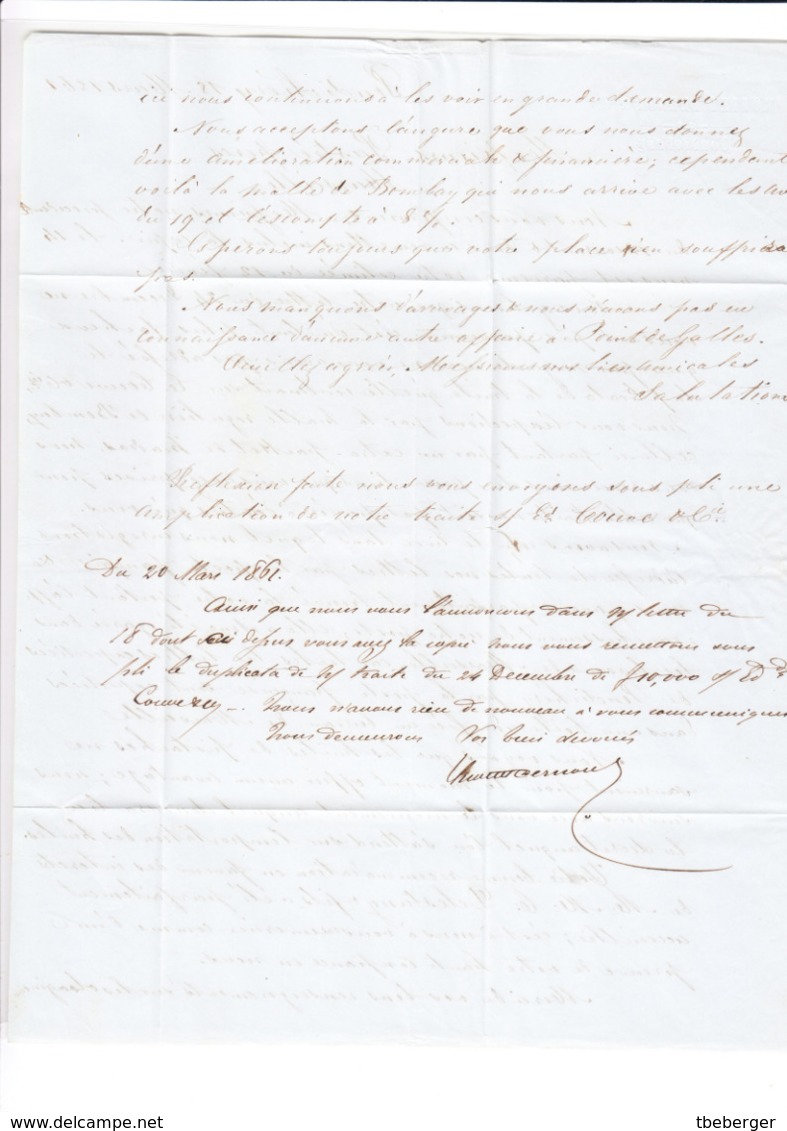 ici nous continuons à les voir en grande demande.
Nous acceptons l'augure que vous nous donnez
d'une amélioration commerciale & financière; cependant
voilà la malle de Bombay qui nous arrive avec les av
du 19 et l'escompte à 8 %.
Esperons toujours que votre place n'en souffrira
pas.
Nous manquons d'arrivages & nous n'avons pas eu
connaissance d'aucune autre affaire à Point de Galles.
Veuillez agréer, Messieurs nos bien amicales
Salutations
Reflexion faite nous vous envoyons sous pli une
de notre traite s/ Ed Couve & Cie
Du 20 Mars 1861.
Ainsi que nous vous l'annoncions dans n/ lettre du
18 dont ci dessus vous avez la copie nous vous remettons sous
pli le duplicata de n/ traite du 24 Decembre de f 10,000 s/ Ed d
Couve & Cy — Nous n'avons rien de nouveau à vous communiquer
Nous demeurons Vos bien dévoués
delcampe.net
tbeberger